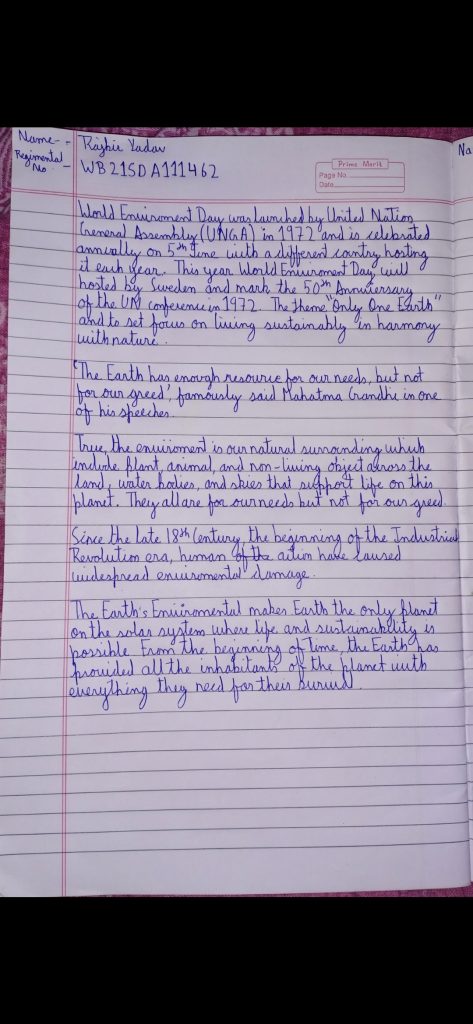 Name - - Rajbir Yadav
Regimental No - WB21SDA111462
Na
Prime Merit
Page No.
Date
World Enviroment Day was launched by United Nation
General Assembly (UNGA) in 1972 and is celebrated
annually on 5th June with a different country hosting
it each year. This year World Enviroment Day will
hosted by Sweden and mark the 50th Anniversary
of the UN conference in 1972. The theme "Only One Earth"
and to set focus on living sustainably in harmony
with nature.
'The Earth has enough resource for our needs, but not
for our greed', famously said Mahatma Gandhi in one
of his speeches.
True, the enviroment is our natural surrounding which
include plant, animal, and non-living object across the
land, water bodies, and skies that support life on this
planet. They all are for our needs but not for our greed.
Since the late 18th Century, the beginning of the Industrial
Revolution era, human of the action have caused
widespread enviromental damage.
The Earth's Enviromental makes Earth the only planet
on the solar system where life and sustainability is
possible. From the beginning of time, the Earth has
provided all the inhabitants of the planet with
everything they need for their survival.